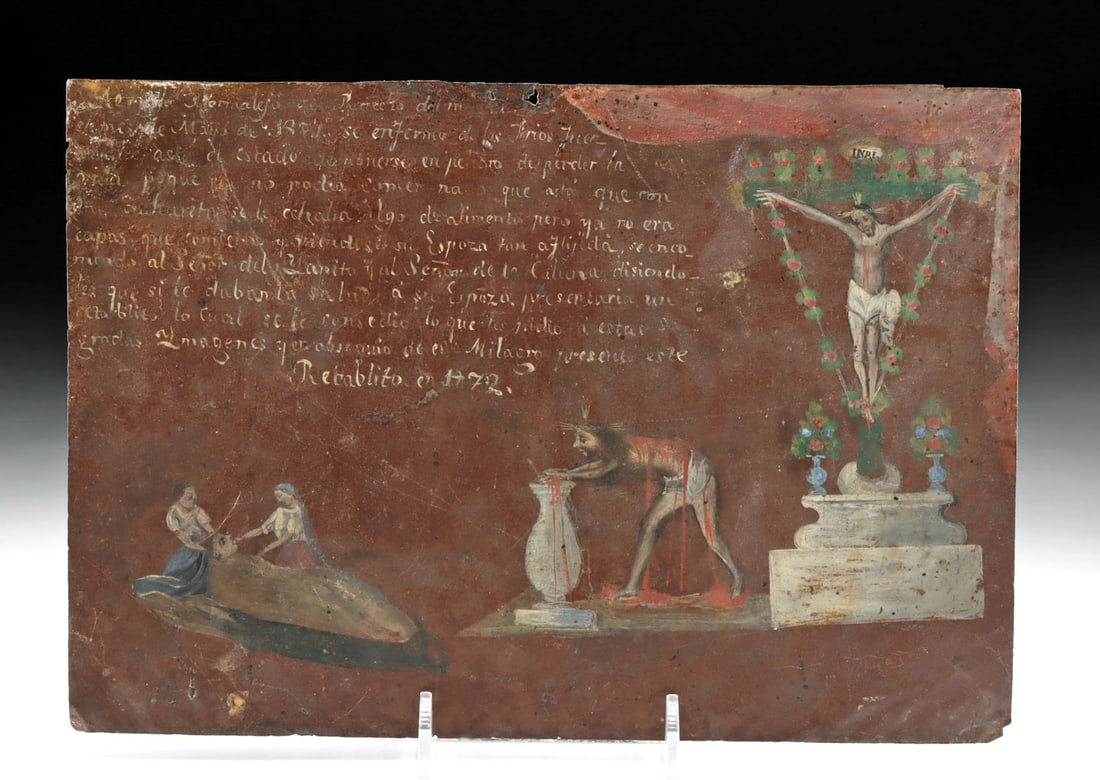 del
el mes de Mayo de 187 se enfermo de los frios
asta el estado de ponerse en peligro de perder la
vida porque ya no podia comer nada que asta que con
se le echaba algo de alimento pero ya no era
capas que comiera y biendose su Espoza tan aflijida, se enco-
mendo al Señor del Llanito y al Señor de la Coluna disiendo-
les que si le daban la salud á su Espoza presentaria un
retablito lo Cual se le consedio lo que les pidio a estas Sa-
gradas Ymagenes y en obsequio de este Milagro presento este
Retablito en 1872.
INRI